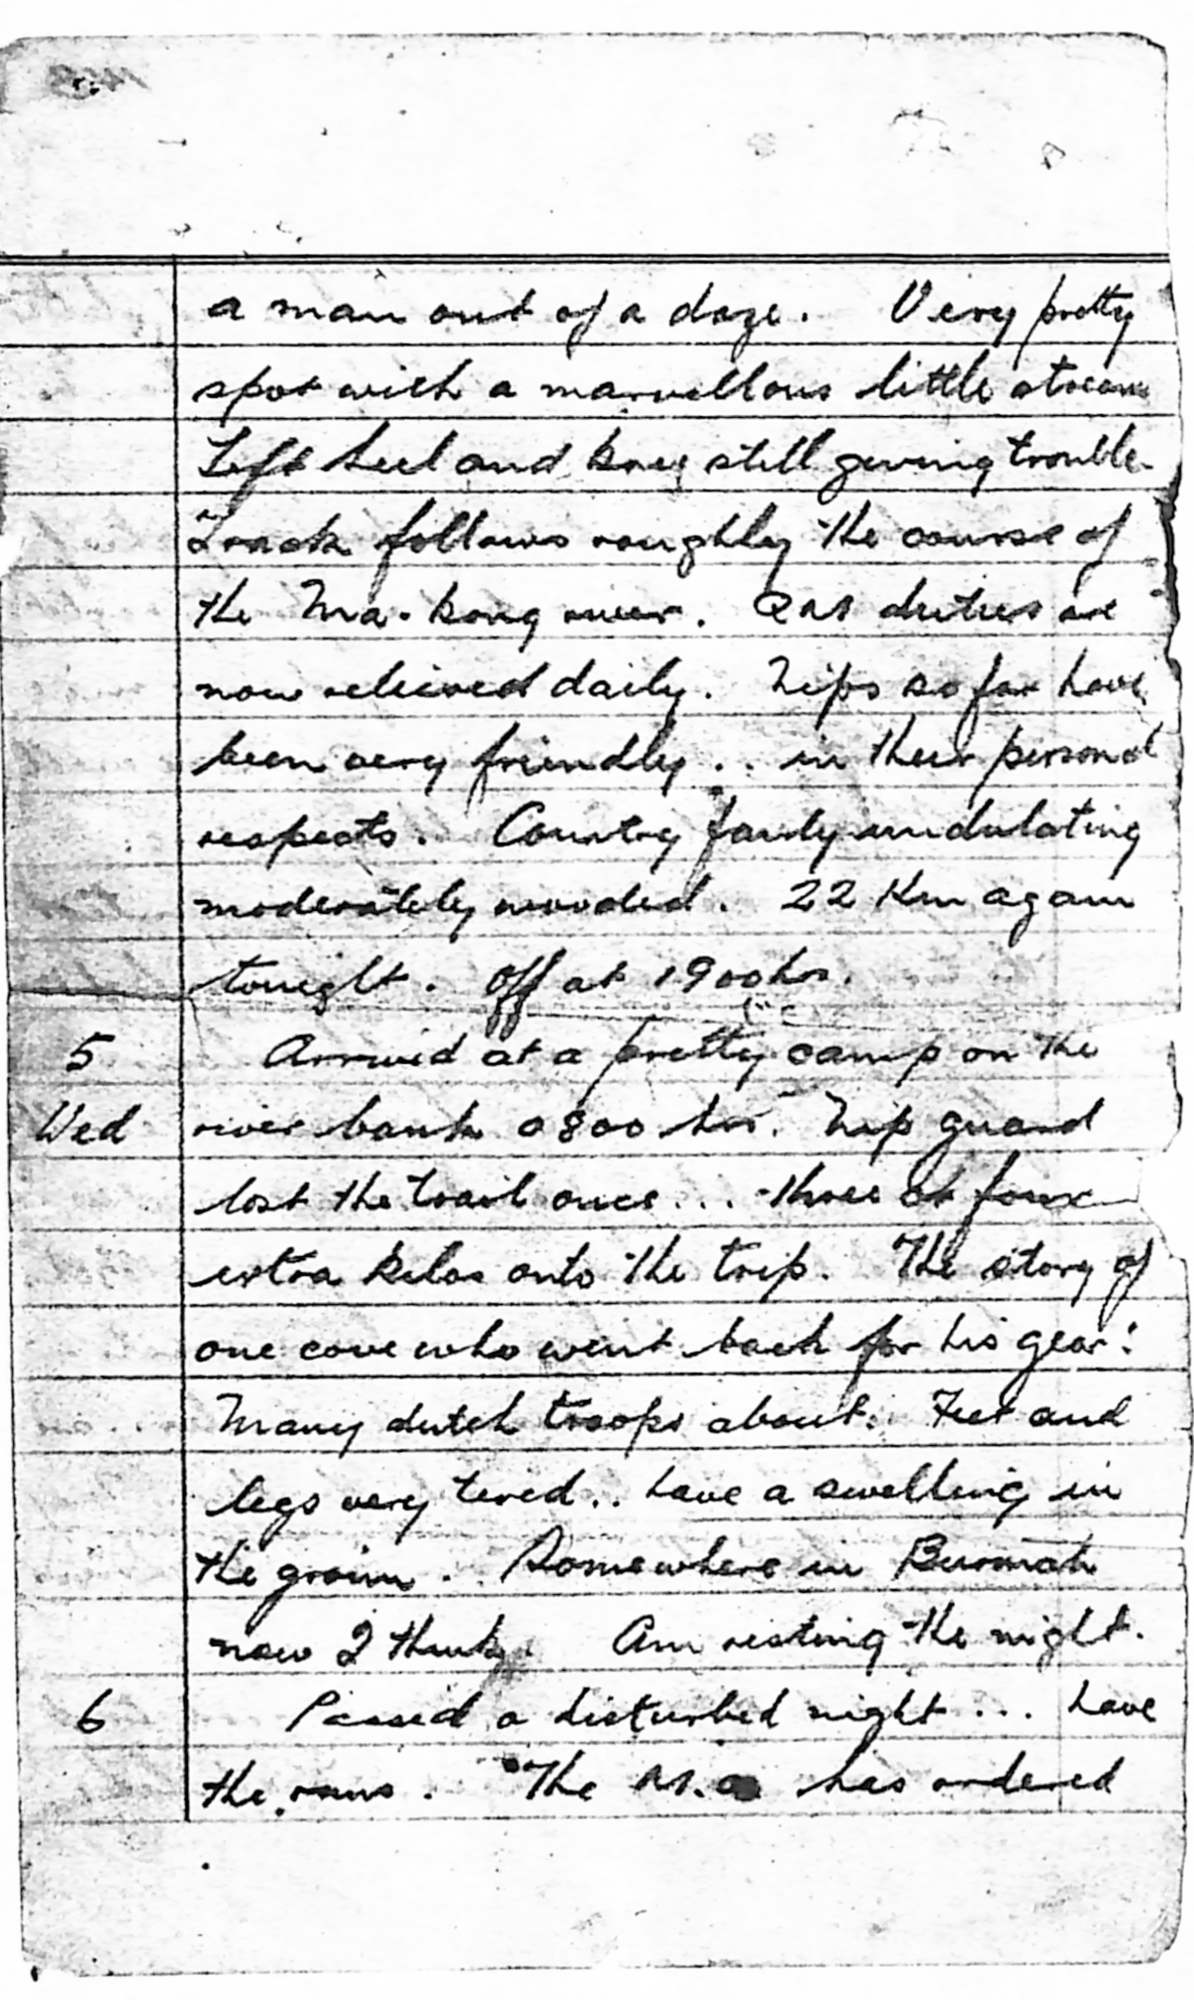 a man out of a daze. Very pretty
spot with a marvellous little stream
Left heel and knee still giving trouble.
Track follows roughly the course of
the Ma-kong river. duties are
now relieved daily. Nips so far have
been very friendly .. in their personal
respects. Country fairly undulating
moderately wooded. 22 Km again
tonight. Off at 1900 hrs.
5 Arrived at a pretty camp on the
Wed river bank 0800 hrs. Nip guard
lost the trail once ... three or four
extra kilos onto the trip. The story of
one cove who went back for his gear!
Many dutch troops about. Feet and
legs very tired .. have a swelling in
the groin. Somewhere in Burmah
now I think. Am resting the night.
6 Passed a disturbed night ... have
the runs. The M.O has ordered